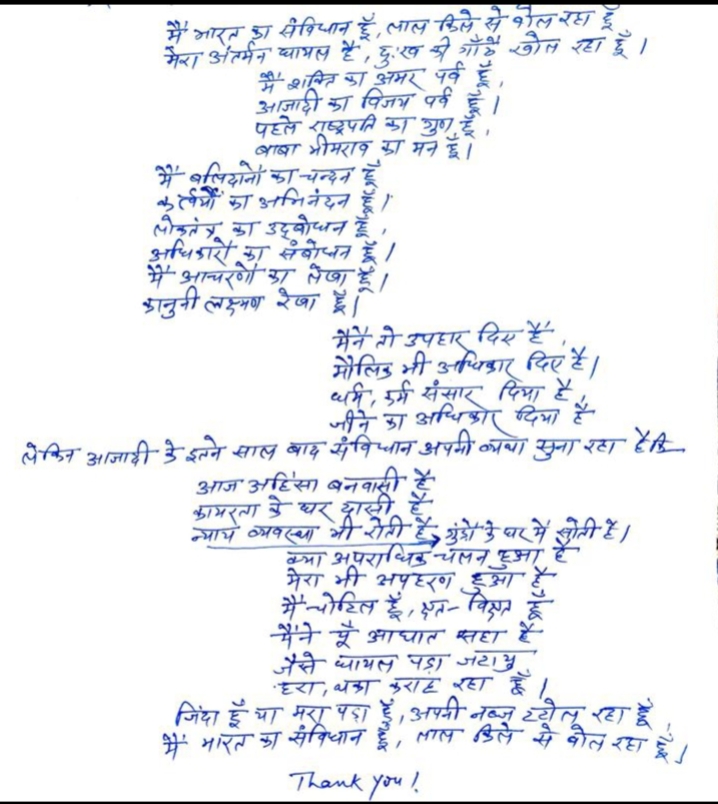 मैं भारत का संविधान हूँ, लाल किले से बोल रहा हूँ
मेरा अंतर्मन घायल है, दुःख की गाँठें खोल रहा हूँ।
मैं शक्ति का अमर पर्व हूँ,
आजादी का विजय पर्व हूँ।
पहले राष्ट्रपति का गुण हूँ,
बाबा भीमराव का मन हूँ।
मैं बलिदानों का चन्दन हूँ
कर्तव्यों का अभिनंदन हूँ।
लोकतंत्र का उद्बोधन हूँ,
अधिकारों का संबोधन हूँ।
मैं आचरणों का लेखा हूँ।
कानुनी लक्ष्मण रेखा हूँ।
मैंने तो उपहार दिए हैं,
मौलिक भी अधिकार दिए है।
धर्म, कर्म संसार दिया है,
जीने का अधिकार दिया है
लेकिन आजादी के इतने साल बाद संविधान अपनी व्यथा सुना रहा है कि
आज अहिंसा बनवासी है
कायरता के घर दासी है
न्याय व्यवस्था भी रोती है, गुंडों के घर में सोती है।
क्या अपराधिक चलन हुआ है
मेरा भी अपहरण हुआ है
मैं चोटिल हूँ, क्षत-विक्षत हूँ
मैंने यूँ आघात सहा है
जैसे घायल पड़ा जटायु
हरा, थका कराह रहा हूँ।
जिंदा हूँ या मरा पड़ा हूँ, अपनी नब्ज टटोल रहा हूँ,
मैं भारत का संविधान हूँ, लाल किले से बोल रहा हूँ।
Thank you!